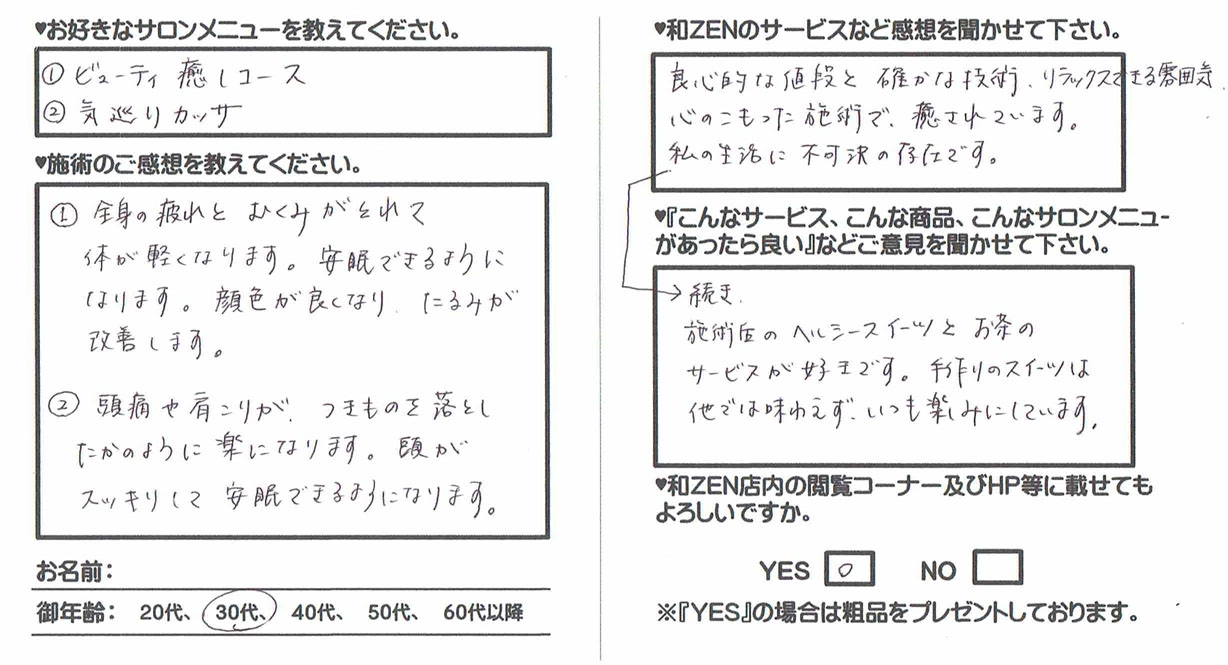 ♥お好きなサロンメニューを教えてください。
① ビューティ 癒しコース
② 気巡りカッサ
♥施術のご感想を教えてください。
① 全身の疲れと むくみがとれて
体が軽くなります。安眠できるように
なります。顔色が良くなり、たるみが
改善します。
② 頭痛や肩こりが、つきものを落とし
たかのように楽になります。頭が
スッキリして安眠できるようになります。
お名前:
御年齢: 20代、 30代、 40代、 50代、 60代以降
♥和ZENのサービスなど感想を聞かせて下さい。
良心的な値段と 確かな技術、リラックスできる雰囲気、
心のこもった施術で、癒されています。
私の生活に不可決の存在です。
♥『こんなサービス、こんな商品、こんなサロンメニュー
があったら良い』などご意見を聞かせて下さい。
→続き、
施術后のヘルシースイーツとお茶の
サービスが好きです。手作りのスイーツは
他では味わえず、いつも楽しみにしています。
♥和ZEN店内の閲覧コーナー及びHP等に載せても
よろしいですか。
YES ○ NO
※『YES』の場合は粗品をプレゼントしております。